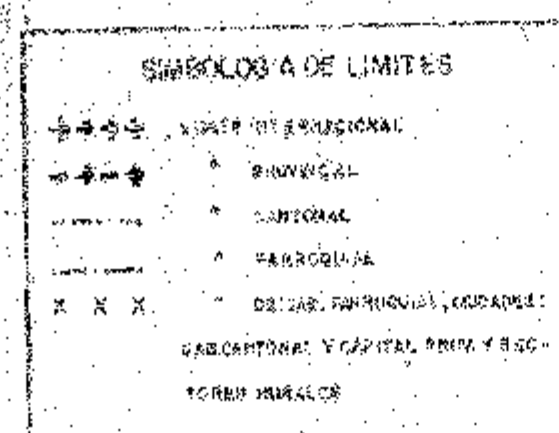 SIMBOLOGIA DE LIMITES
LIMITE INTERNACIONAL
" PROVINCIAL
" CANTONAL
" PARROQUIAL
" DE CAB. PARROQUIAL, CIUDADES:
CAB. CANTONAL Y CAPITAL PROV. Y SEC-
TORES RURALES